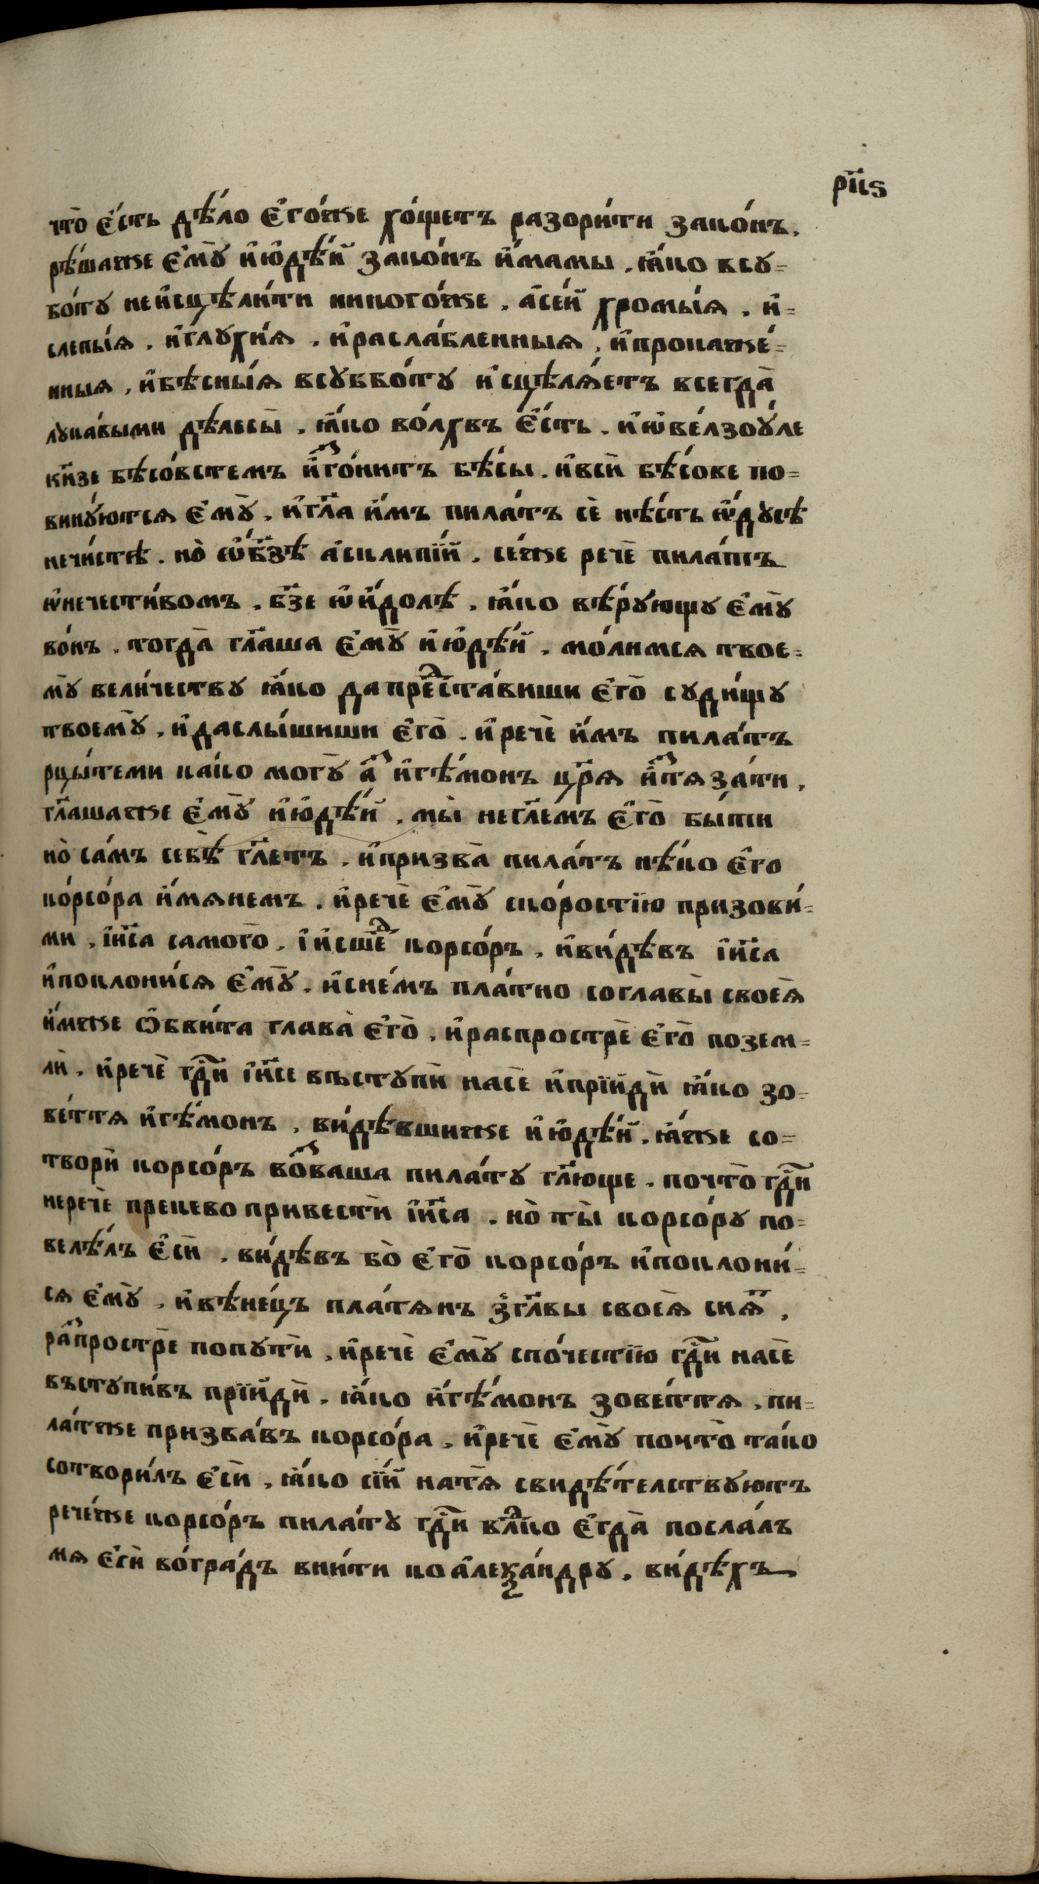 рк҃ѕ
что̀ є҆́сть дѣ́ло є҆го́же хо́щетъ разори́ти зако́нъ.
рѣ́шаже є҆мꙋ̀ и҆ю҆дѣ́й зако́нъ и҆́мамы. ꙗ҆́ко всꙋ-
бо́тꙋ неи҆сцѣли́ти никого́же. а҆се́й хромы́ѧ. и҆-
слепы́ѧ. и҆глꙋхи́ѧ. и҆расла́бленныѧ, и҆прокаже́-
нныѧ, и҆бѣсны́ѧ всꙋббо́тꙋ и҆сцѣлѧ́етъ всегда̀
лꙋка́выми дѣлесы̀. ꙗ҆́ко во́лхвъ є҆́сть. и҆ѡ҆ве́лзоꙋ́ле
кн҃зе бѣсо́встемъ и҆зго́нитъ бѣ́сы. и҆всѝ бѣ́сове по-
винꙋ́ютсѧ є҆мꙋ̀. и҆гл҃а и҆̀мъ пила́тъ сѐ нѣ́сть ѡ҆дꙋсѣ
нечи́стѣ. но̀ ѡ҆бз҃ѣ а҆скипі́й. се́же речѐ пила́тъ
ѡ҆нечести́вомъ. бз҃е ѡ҆и҆́долѣ. ꙗ҆́ко вѣ́рꙋющꙋ є҆мꙋ̀
во́нь. тогда̀ гл҃аша є҆мꙋ̀ и҆ю҆дѣ́й. мо́лимсѧ твое-
мꙋ̀ вели́чествꙋ ꙗ҆́ко дапредста́виши є҆го̀ сꙋди́щꙋ
твоемꙋ̀, и҆даслы́шиши є҆го̀. и҆речѐ и҆̀мъ пила́тъ
рцы́теми ка́ко могꙋ̀ а҆́з и҆ге́монъ цр҃ѧ и҆стѧза́ти,
гл҃ашаже є҆мꙋ̀ и҆ю҆дѣ́й, мы̀ негл҃емъ є҆го̀ бы́ти
но̀ са́мъ себѐ гл҃етъ. и҆призва̀ пила́тъ нѣ́ко є҆го
кꙋ́рсо́ра и҆́мѧнемъ. и҆речѐ є҆мꙋ̀ ско́ростїю призови́-
ми, і҆и҃са самого̀. і҆и҆сше́д корсо́ръ. и҆ви́дѣвъ і҆и҃са
и҆поклони́сѧ є҆мꙋ̀. и҆сне́мъ пла́тно соглавы̀ своеѧ̀
и҆́мже ѡ҆бви́та глава̀ є҆го̀. и҆распрострѐ є҆го̀ позем-
лѝ. и҆речѐ гдⷭ҇и і҆и҃се въстꙋпѝ насѐ и҆прїидѝ ꙗ҆́ко зо-
ве́ттѧ и҆ге́монъ, ви́дѣвшиже и҆ю҆дѣ́й. ꙗ҆́же со-
творѝ корсо́ръ возваша пила́тꙋ гл҃юще. почто̀ гдⷭ҇и
неречѐ прекево привестѝ і҆и҃са. но̀ ты̀ корсо́рꙋ по-
велѣ́лъ є҆сѝ, ви́дѣвъ бо̀ є҆го̀ корсо́ръ и҆поклони́-
сѧ є҆мꙋ̀, и҆вѣне́цъ пла́тѧнъ зглв҃ы своеѧ̀ снѧт,
распрострѐ попꙋтѝ, и҆речѐ є҆мꙋ̀ спо́честїю гдⷭ҇и насѐ
въстꙋпи́въ прїидѝ. ꙗ҆́ко и҆ге́монъ зове́ттѧ, пи-
ла́тже призва́въ корсо́ра, и҆речѐ є҆мꙋ̀ почто̀ та́ко
сотвори́лъ є҆сѝ, ꙗ҆́ко сі́й натѧ̀ свидѣ́телствꙋютъ
рече́же корсо́ръ пила́тꙋ гдⷭ҇и влⷣко є҆гда̀ посла́лъ
мѧ є҆сѝ во́гра́дъ вни́ти коа҆леѯа́ндрꙋ, ви́дѣхъ